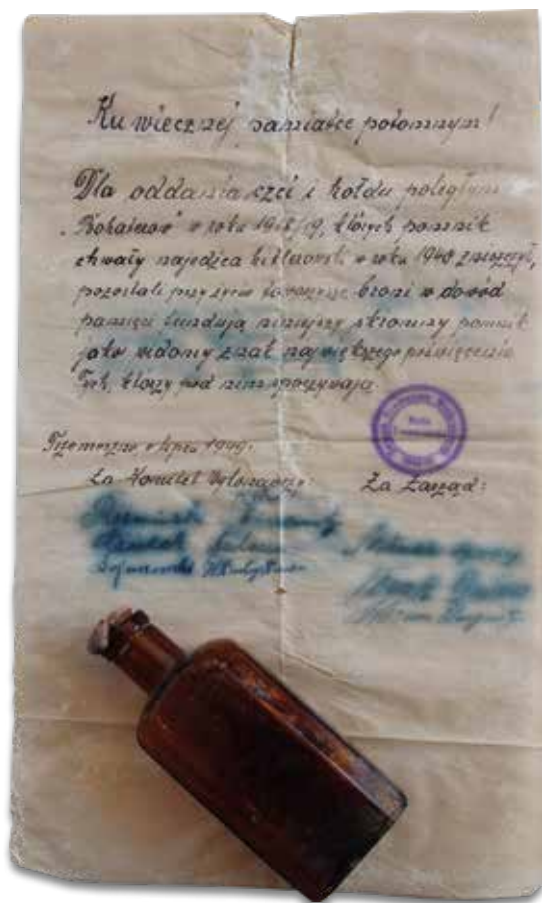 Ku wiecznej pamiatce potomnym!
Dla oddania czci i hołdu poległym
"Bohaterów" w roku 1918/19, których pomnik
chwały najeźdzca hitlerowski w roku 1940 zniszczył,
pozostali przy życiu towarzysze broni w dowód
pamięci fundują niniejszy skromny pomnik
jako widomy znak największego poświęcenia
Tych, którzy pod nim spoczywają.
Trzemeszno w lipcu 1949.
Za Komitet Wykonawczy: Za Zarząd: